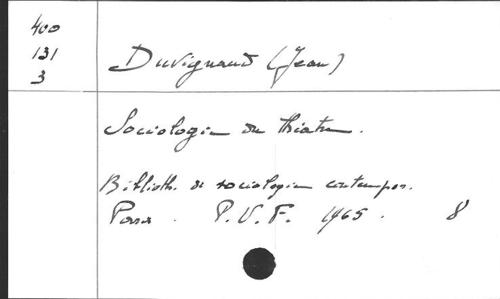 400
131
3
Duvignaud (Jean)
Sociologie du théâtre.
Biblioth. de sociologie contempor.
Paris. P.U.F. 1965. 8